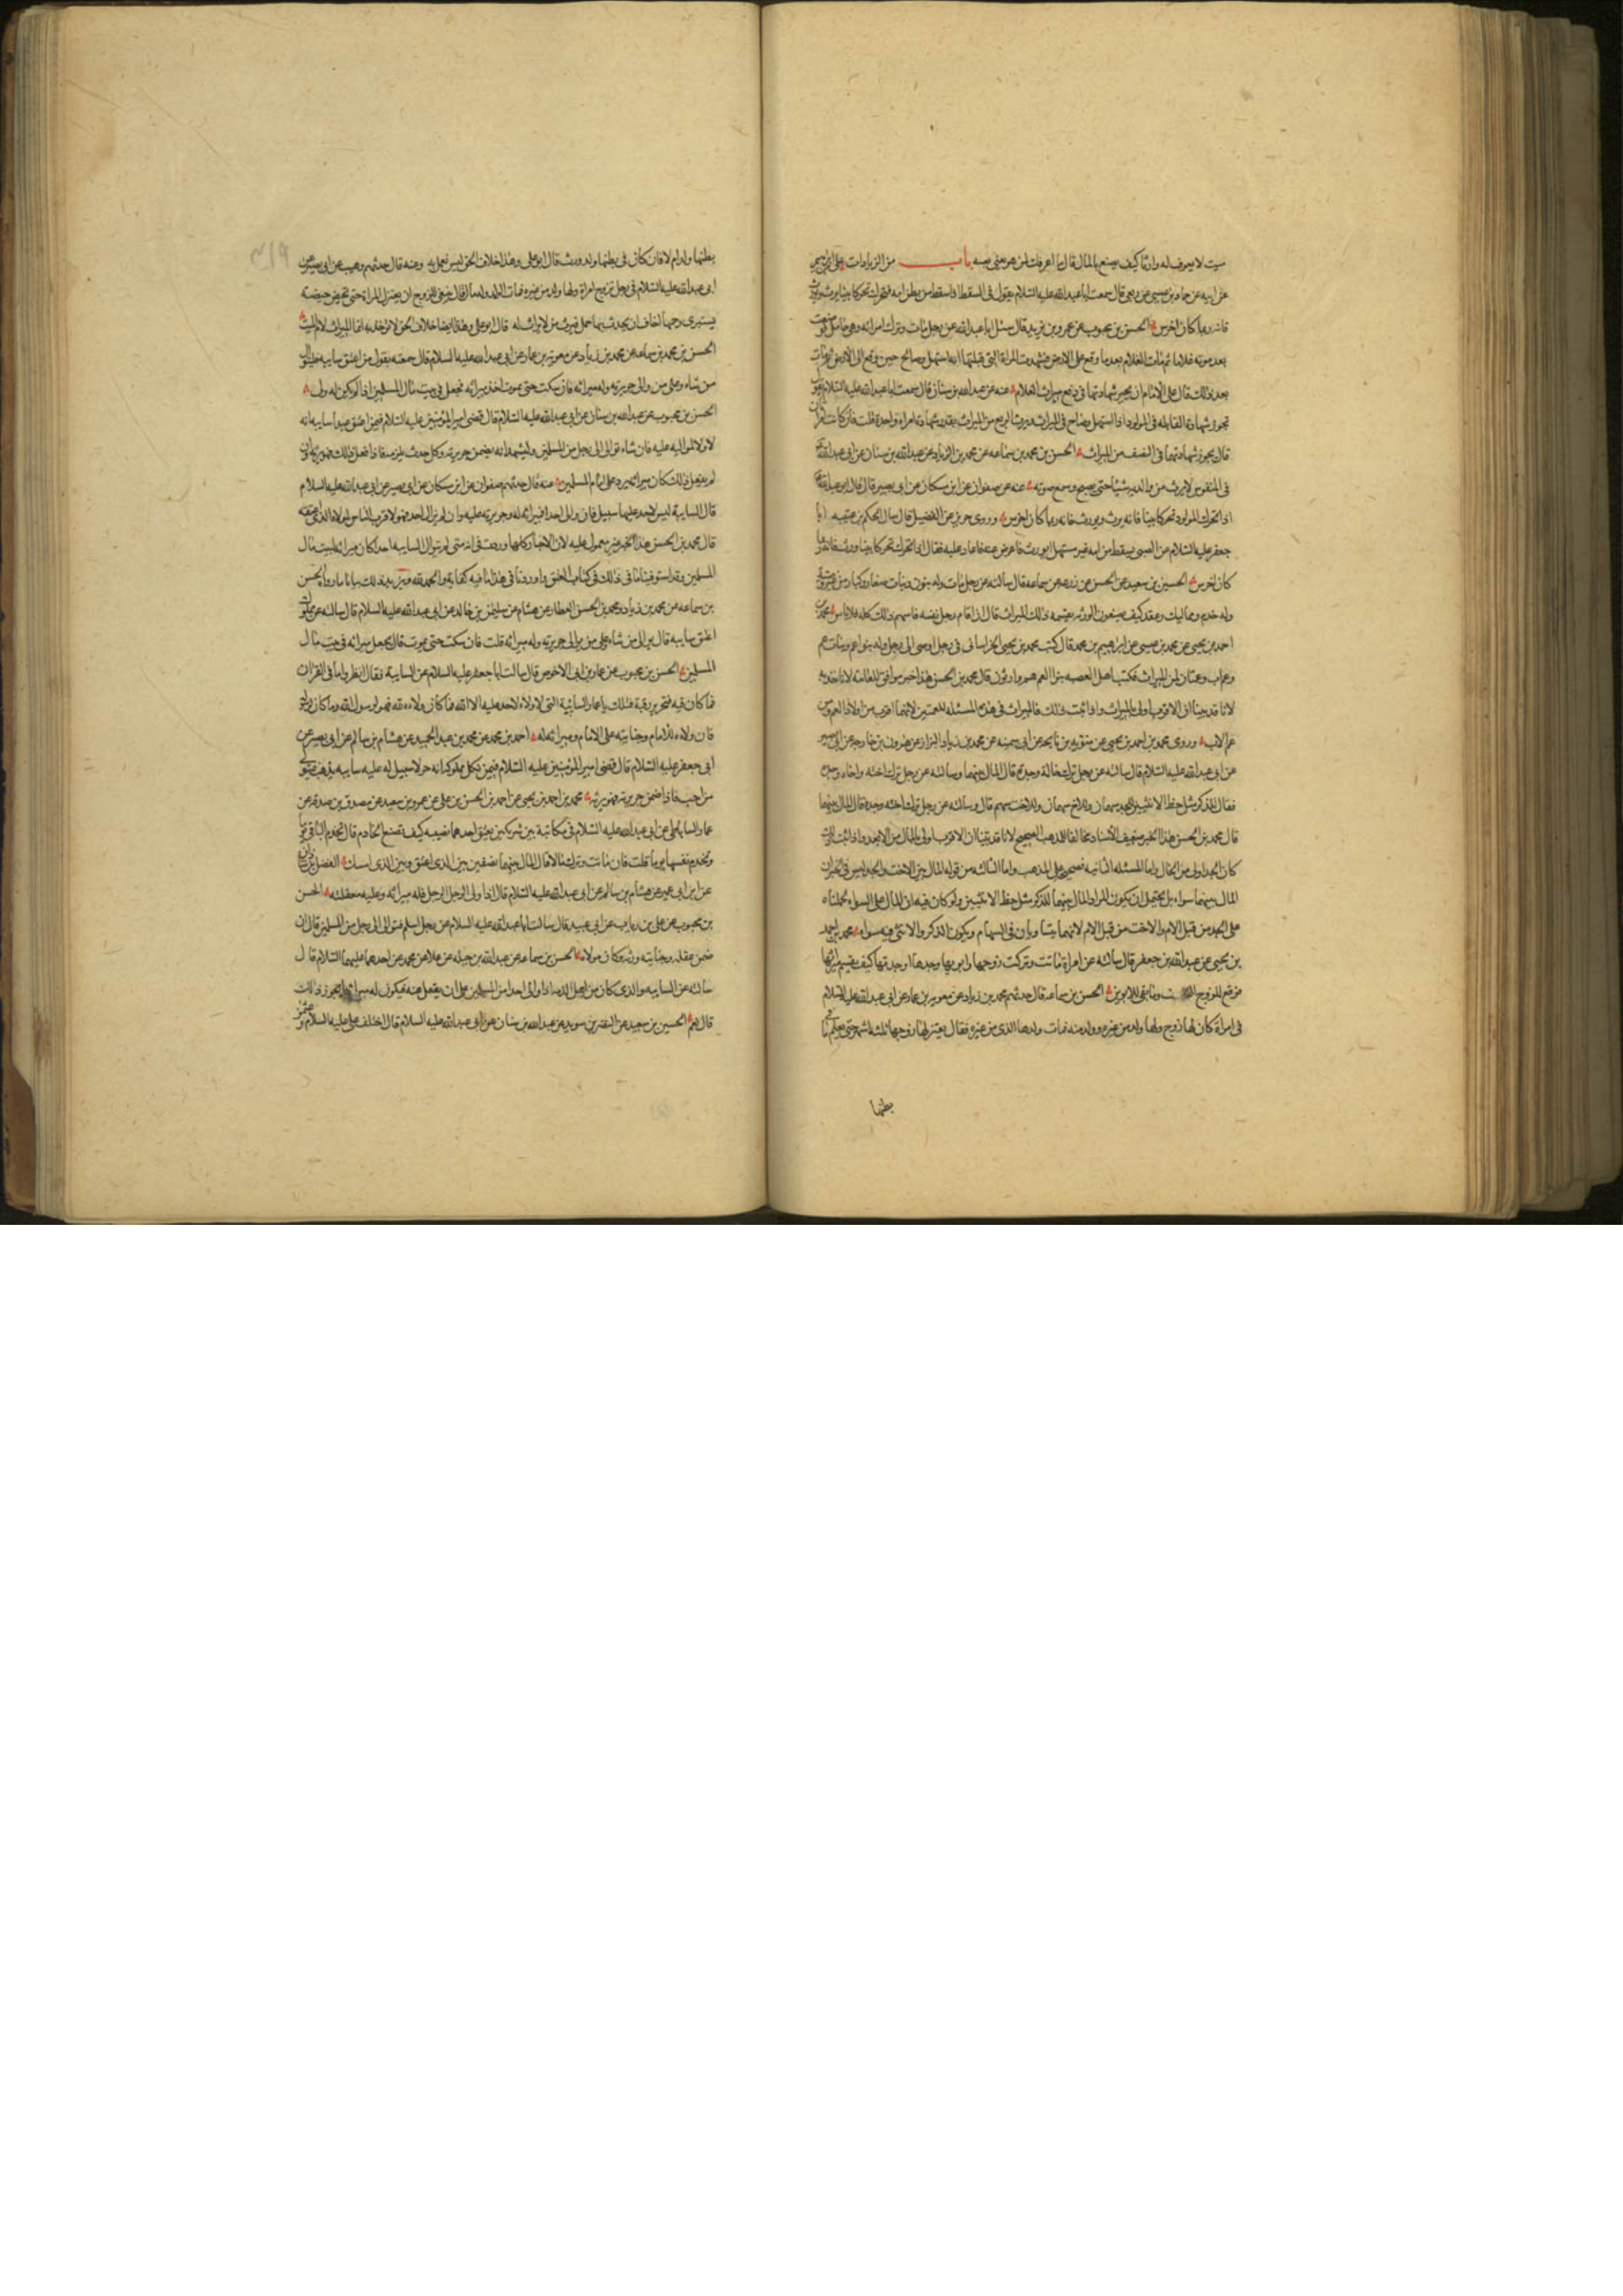 ميت لا يعرف له وارثا كيف يصنع بالمال قال ما اعرفك لمن هو يعنى نفسه باب من الزيادات على بن ابرهيم
عن ابيه عن حماد بن عيسى عن ربعى قال سمعت ابا عبد الله عليه السلام يقول فى السقط اذا سقط من بطن امه فتحرك تحركا بينا يرث ويورث
فانه ربما كان اخرس الحسن بن محبوب عن عمرو بن يزيد قال سئل ابا عبد الله عن رجل مات وترك امراته وهى حامل فوضعت
بعد موته غلاما ثم مات الغلام بعد ما وقع على الارض فشهدت المراة التى قبلتها انه استهل وصاح حين وقع الى الارض ثم مات
بعد ذلك قال على الامام ان يجيز شهادتها فى ربع ميراث الغلام عنه عن عبد الله بن سنان قال سمعت ابا عبد الله عليه السلام يقول
تجوز شهادة القابله فى المولود اذا استهل وصاح فى الميراث ويرث الربع من الميراث بقدر شهادة امراة واحدة قلت فان كانت امراتان
قال يجوز شهادتهما فى النصف من الميراث الحسن بن محمد بن سماعه عن محمد بن الزياد عن عبد الله بن سنان عن ابى عبد الله
فى المنفوس لا يرث من والديه شيئا حتى يصيح ويسمع صوته عنه عن صفوان عن ابن مسكان عن ابى بصير قال قال ابو عبد الله
اذا تحرك المولود تحركا بينا فانه يرث ويورث فانه ربما كان اخرس وروى حريز عن الفضيل قال سال الحكم بن عتيبه ابا
جعفر عليه السلام عن الصبى يسقط من امه غير مستهل ايورث فاعرض عنه فاعاد عليه فقال اذا تحرك تحركا بينا ورث فانه ربما
كان اخرس الحسين بن سعيد عن الحسن عن زرعه عن سماعه قال سالته عن رجل مات وله بنون وبنات صغار وكبار من غير وصية
وله خدم ومماليك وعقد كيف يصنعون الورثه بقسمه ذلك الميراث قال ان قام رجل ثقه قاسمهم ذلك كله فلا باس محمد بن
احمد بن يحيى عن محمد بن عيسى عن ابراهيم بن محمد قال كتب محمد بن يحيى الخراسانى فى رجل اوصى الى رجل وله بنو اعم وبنات عم
وعم اب وعمتان لمن الميراث فكتب اهل العصبه بنوا العم هم وارثون قال محمد بن الحسن هذا خبر موافق للعامه لا ناخذ به
لانا قد بينا ان الاقرب اولى بالميراث واذا ثبت ذلك فالميراث فى هذه المسئله للعمتين لانهما اقرب من اولاد العم ومن
عم الاب وروى محمد بن احمد بن يحيى عن عن محمد بن زياد البزاز عن هرون بن خارجه عن ابى بصير
عن ابى عبد الله عليه السلام قال سالته عن رجل ترك خاله وجده قال المال بينهما وسالته عن رجل ترك اخته واخاه وجده
فقال للذكر مثل حظ الانثيين للجد سهمان وللاخ سهمان وللاخت سهم قال وسالته عن رجل ترك اخته وجده قال المال بينهما
قال محمد بن الحسن هذا الخبر ضعيف الاسناد مخالف للمذهب الصحيح لانا قد بينا ان الاقرب اولى بالمال من الابعد واذا ثبت ذلك
كان الجد اولى من الخال واما المسئله الثانيه فصحيح على المذهب واما الثالثه من قوله المال بين الاخت والجد ليس فى الخبر ان
المال بينهما سواء بل يحتمل ان يكون المراد المال بينهما للذكر مثل حظ الانثيين ولو كان فيه ان المال على السواء لحملناه
على الجد من قبل الام والاخت من قبل الام لانهما يتساويان فى السهام ويكون الذكر والانثى فيه سواء محمد بن احمد
بن يحيى عن عبد الله بن جعفر قال سالته عن امراة ماتت وتركت زوجها وابويها وجدها او جدتها كيف يقسم ميراثها
فوقع للزوج النصف وما بقى للابوين الحسن بن سماعه قال حدثهم محمد بن زياد عن معويه بن عمار عن ابى عبد الله عليه السلام
فى امراة كان لها زوج ولها ولد من غيره وولد منه فمات ولدها الذى من غيره فقال يعتزلها زوجها ثلثه اشهر حتى يعلم ما فى
بطنها
بطنها ولد ام لا فان كان فى بطنها ولد ورث قال ابو على وهذا خلاف الحق ليس نعمل به وعنه قال حدثهم وهيب عن ابى بصير عن
ابى عبد الله عليه السلام فى رجل تزوج امراة ولها ولد من غيره فمات الولد وله مال قال ينبغى للزوج ان يعتزل المراة حتى تحيض حيضه
يستبرى رحمها اخاف ان يحدث بها حمل فيرث من لا ميراث له قال ابو على وهذا ايضا خلاف الحق لا نوخذ به انما الميراث لام الميت
الحسن بن محمد بن سماعه عن محمد بن زياد عن معويه بن عمار عن ابى عبد الله عليه السلام قال سمعته يقول من اعتق سايبه فليتوال
من شاء وعلى من والى جريرته وله ميراثه فان سكت حتى يموت اخذ ميراثه فجعل فى بيت مال المسلمين اذا لم يكن له ولى
الحسن بن محبوب عن عبد الله بن سنان عن ابى عبد الله عليه السلام قال قضى امير المومنين عليه السلام فيمن اعتق عبدا سايبه انه
لا ولاء لمواليه عليه فان شاء توالى الى رجل من المسلمين وليشهد انه يضمن جريرته وكل حدث يلزمه فاذا فعل ذلك فهو يرثه وان
لم يفعل ذلك كان ميراثه يرد على امام المسلمين عنه قال حدثهم صفوان عن ابن مسكان عن ابى بصير عن ابى عبد الله عليه السلام
قال السايبة ليس لاحد عليها سبيل فان والى احدا فميراثه له وجريرته عليه وان لم يوال احدا فهو لاقرب الناس لمولاه الذى اعتقه
قال محمد بن الحسن هذا الخبر غير معمول عليه لان الاخبار كلها وردت فى انه متى لم يتوال السايبه احدا كان ميراثه لبيت مال
المسلمين وقد استوفينا ما فى ذلك فى كتاب العتق واوردنا فى هذا ما فيه كفاية والحمد لله ويزيد ذلك بيانا ما رواه الحسن
بن سماعه عن محمد بن زياد ومحمد بن الحسن العطار عن هشام عن سليمن بن خالد عن ابى عبد الله عليه السلام قال سالته عن مملوك
اعتق سايبه قال يوالى من شاء وعلى من يوالى جريرته وله ميراثه قلت فان سكت حتى يموت قال يجعل ميراثه فى بيت مال
المسلمين الحسن بن محبوب عن عمار بن ابى الاحوص قال سالت ابا جعفر عليه السلام عن السايبة فقال انظروا ما فى القران
فما كان فيه فتحرير رقبة فتلك يا عمار السايبة التى لا ولاء لاحد عليه الا الله فما كان ولاءه لله فهو لرسول الله وما كان لرسول الله
فان ولاءه للامام وجنايته على الامام وميراثه له احمد بن محمد عن محمد بن عبد الحميد عن هشام بن سالم عن ابى بصير عن
ابى جعفر عليه السلام قال قضى امير المومنين عليه السلام فيمن نكل بمملوكه انه حر لا سبيل له عليه سايبه يذهب فيتولى
من احب فاذا ضمن جريرته فهو يرثه محمد بن احمد بن يحيى عن احمد بن الحسن بن على عن عمرو بن سعيد عن مصدق بن صدقه عن
عمار الساباطى عن ابى عبد الله عليه السلام فى مكاتبة بين شريكين يعتق احدهما نصيبه كيف تصنع الخادم قال تخدم الباقى يوما
وتخدم نفسها يوما قلت فان ماتت وتركت مالا قال المال بينهما نصفين بين الذى اعتق وبين الذى امسك الفضل بن شاذان
عن ابن ابى عمير عن هشام بن سالم عن ابى عبد الله عليه السلام قال اذا ولى الرجل الرجل فله ميراثه وعليه معقلته الحسن
بن محبوب عن على بن رياب عن ابى عبيدة قال سالت ابا عبد الله عليه السلام عن رجل اسلم فتوالى الى رجل من المسلمين قال ان
ضمن عقله وجنايته ورثه وكان مولاه الحسن بن سماعه عن عبد الله بن جبله عن علا عن محمد عن احدهما عليهما السلام قال
سالته عن السايبه والذى كان من اهل الذمه اذا والى احدا من المسلمين على ان يعقل عنه فيكون له ميراثه ايجوز ذلك
قال نعم الحسين بن سعيد عن النضر بن سويد عن عبد الله بن سنان عن ابى عبد الله عليه السلام قال اختلف على عليه السلام وعثمن